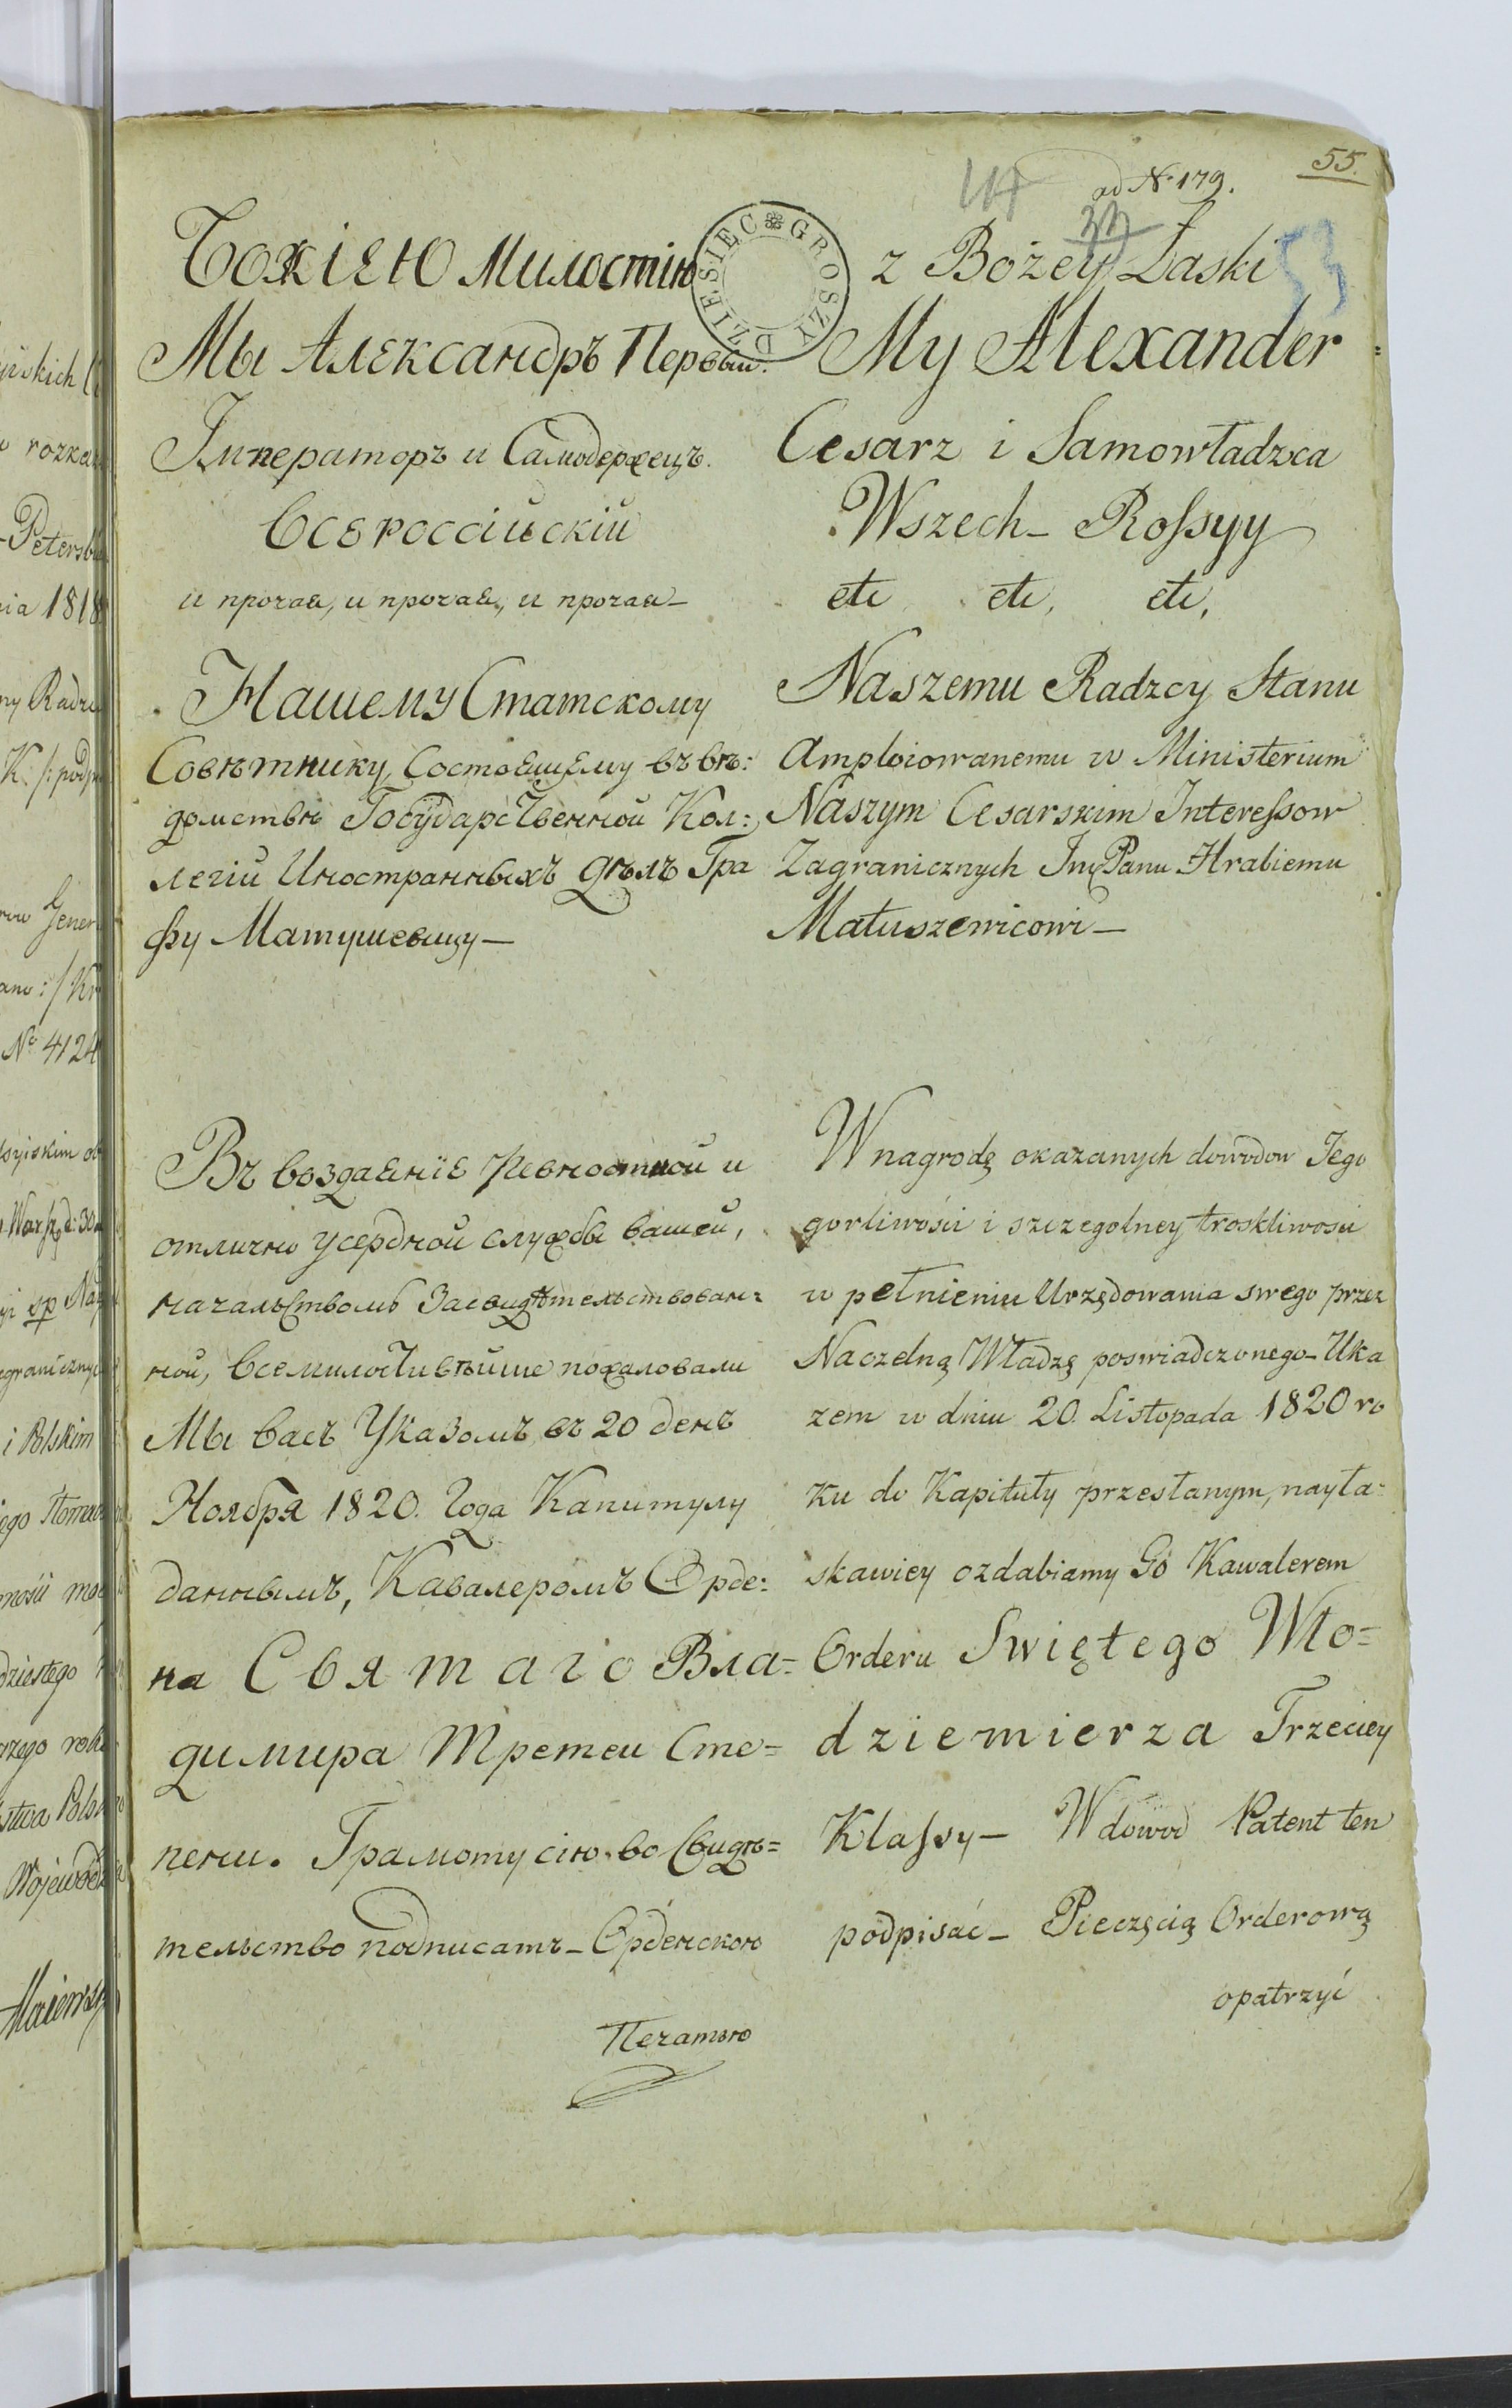 55.
ad N. 179.
53
DZIESIĘC GROSZY
Божіею Милостію
Мы Александръ Первый.
Імператоръ и Самодержецъ.
Всероссійскій
и прочая, и прочая, и прочая_
Нашему Статскому
Совѣтнику, Состоящему въ вѣ:
домствѣ Государственной Кол:
легіи Иностранныхъ дѣлъ Гра
фу Матушевицу_
Въ воздаяніе Ревностной и
отлично усердной службы вашей,
начальствомъ Засвидѣтельствован=
ной, Всемилостивѣйше пожаловали
Мы васъ Указомъ, въ 20 день
Ноября 1820. Года Капитулу
даннымъ, Кавалеромъ Орде:
на Святаго Вла=
димира Третеи Сте=
пени. Грамоту сію во Свидѣ=
тельство подписать_ Орденскою
Печатью
z Bożey Łaski
My Alexander
Cesarz i Samowładzca
Wszech_ Rossyy
etc etc, etc,
Naszemu Radzcy Stanu
Amploiowanemu w Ministerium
Naszym Cesarskim Interessow
Zagranicznych Panu Hrabiemu
Matuszewicowi_
W nagrodę okazanych dowodow Jego
gorliwości i szczegolney troskliwosci
w pełnieniu Urzędowania swego przez
Naczelną Władzę poswiadczonego_ Uka
zem w dniu 20. Listopada 1820 ro
ku do Kapituły przesłanym, nayła=
skawiey ozdabiamy Go Kawalerem
Orderu Swiętego Wło=
dziemierza Trzeciey
Klassy_ W dowod Patent ten
podpisać_ Pieczęcią Orderową
opatrzyć